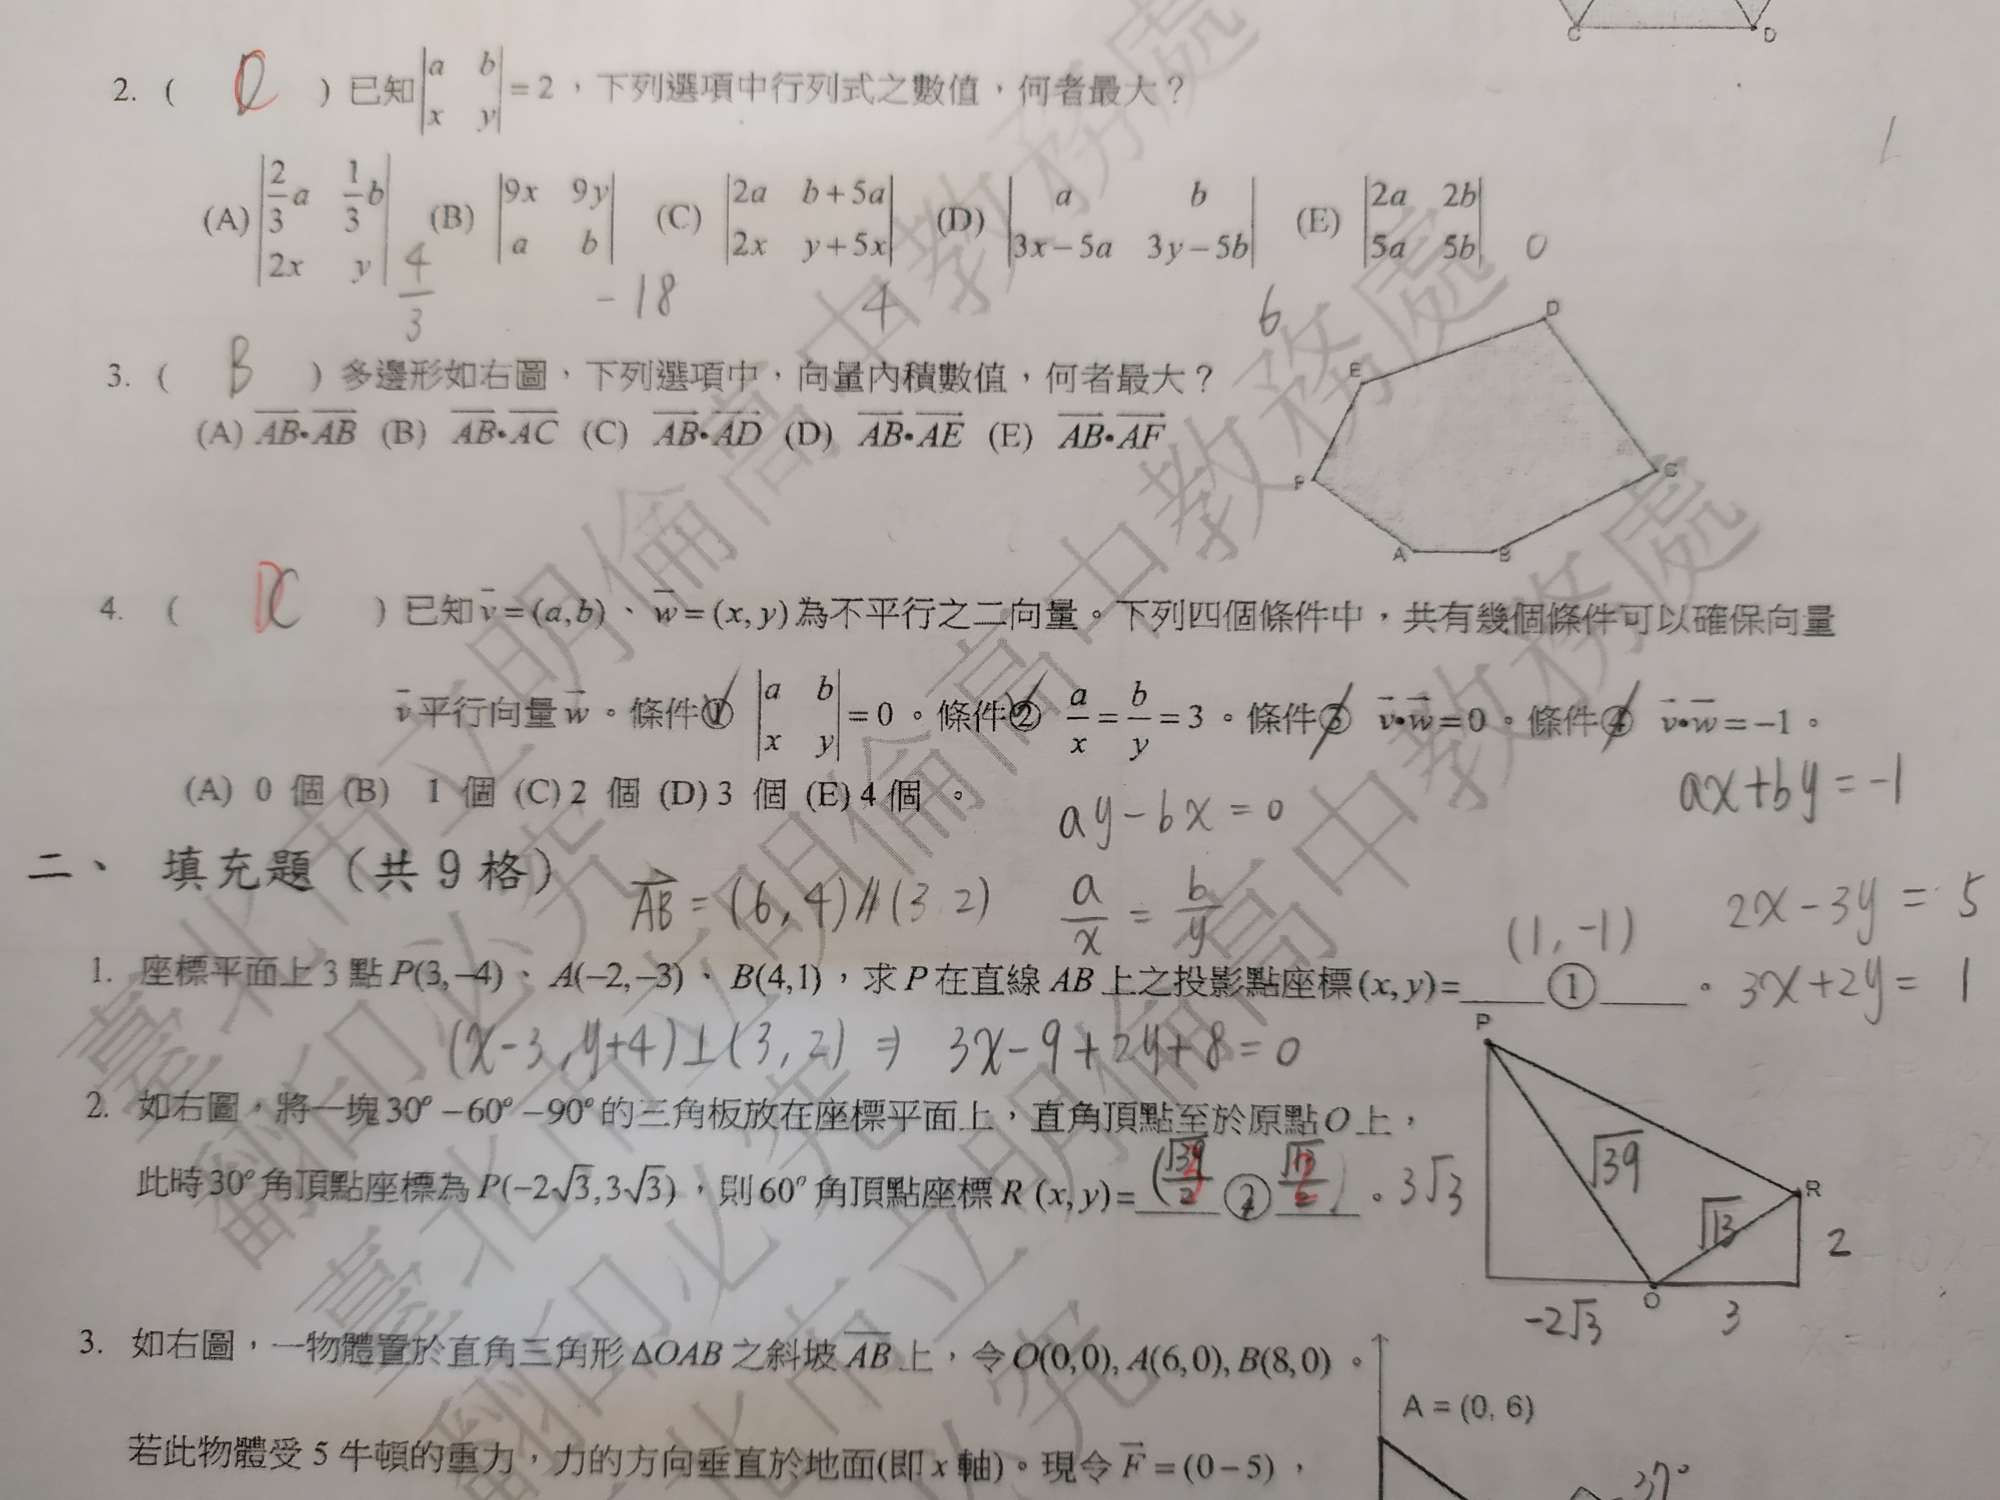 C D
2. ( D ) 已知 |a b; x y| = 2，下列選項中行列式之數值，何者最大？
(A) |2/3 a 1/3 b; 2x y| (B) |9x 9y; a b| (C) |2a b+5a; 2x y+5x| (D) |a b; 3x−5a 3y−5b| (E) |2a 2b; 5a 5b| 0
4/3 −18 4 6
3. ( B ) 多邊形如右圖，下列選項中，向量內積數值，何者最大？
(A) AB•AB (B) AB•AC (C) AB•AD (D) AB•AE (E) AB•AF
D
E
C
F
A B
4. ( D ) 已知 v=(a,b)、w=(x,y)為不平行之二向量。下列四個條件中，共有幾個條件可以確保向量
v平行向量w。條件① |a b; x y| = 0。條件② a/x = b/y = 3。條件③ v•w=0。條件④ v•w=−1。
(A) 0 個 (B) 1 個 (C) 2 個 (D) 3 個 (E) 4 個。
ay−bx=0
ax+by=−1
二、 填充題（共 9 格）
AB = (6, 4) // (3 2)
a/x = b/y
(1, −1)
2x−3y = 5
1. 座標平面上 3 點 P(3,−4)、A(−2,−3)、B(4,1)，求 P 在直線 AB 上之投影點座標 (x, y)=____①____。
3x+2y= 1
(x−3, y+4)⊥(3, 2) ⇒ 3x−9+2y+8=0
2. 如右圖，將一塊30°−60°−90°的三角板放在座標平面上，直角頂點至於原點O上，
此時30°角頂點座標為 P(−2√3,3√3)，則60°角頂點座標 R (x, y)=____②____。
3√3
P
√39
R
√13
2
O
−2√3 3
3. 如右圖，一物體置於直角三角形 ΔOAB 之斜坡 AB 上，令 O(0,0), A(6,0), B(8,0)。
A = (0, 6)
若此物體受 5 牛頓的重力，力的方向垂直於地面(即 x 軸)。現令 F = (0−5)，
37°
臺北市立明倫高中教務處
翻印必究
臺北市立明倫高中教務處
翻印必究
臺北市立明倫高中教務處